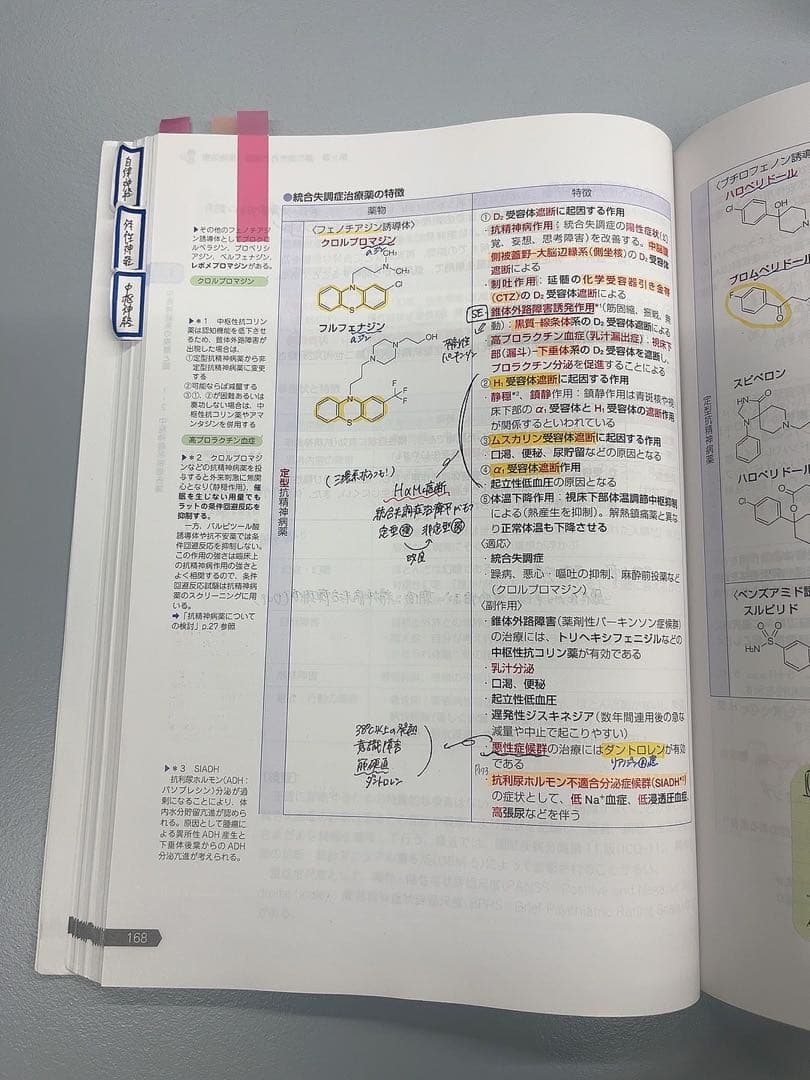 自律神経
体性神経
中枢神経
●統合失調症治療薬の特徴
薬物
特徴
▶その他のフェノチアジ
ン誘導体としてプロクロ
ルペラジン、プロペリシ
アジン、ペルフェナジン、
レボメプロマジンがある。
クロルプロマジン
▶＊1 中枢性抗コリン
薬は認知機能を低下させ
るため、錐体外路障害が
出現した場合は、
①定型抗精神病薬から非
定型抗精神病薬に変更
する
②可能ならば減量する
③①、②が困難あるいは
奏功しない場合は、中
枢性抗コリン薬やアマ
ンタジンを併用する
高プロラクチン血症
▶＊2 クロルプロマジ
ンなどの抗精神病薬を投
与すると外来刺激に無関
心となり(静穏作用)、催
眠を生じない用量でも
ラットの条件回避反応を
抑制する。
一方、バルビツール酸
誘導体や抗不安薬では条
件回避反応を抑制しない。
この作用の強さは臨床上
の抗精神病作用の強さと
よく相関するので、条件
回避反応試験は抗精神病
薬のスクリーニングに用
いる。
➡「抗精神病薬について
の検討」p.27 参照
▶＊3 SIADH
抗利尿ホルモン(ADH：
バソプレシン)分泌が過
剰になることにより、体
内水分貯留亢進が認めら
れる。原因として腫瘍に
よる異所性 ADH 産生と
下垂体後葉からの ADH
分泌亢進が考えられる。
168
定型抗精神病薬
〈フェノチアジン誘導体〉
クロルプロマジン
アジン
CH₃
N
CH₃
N
Cl
S
フルフェナジン
アジン
OH
N
N
N
F
F
F
S
H₁α₁M遮断
統合失調症治療薬
定型 非定型
改良
38℃以上の発熱
意識障害
筋硬直
ダントロレン
① D₂ 受容体遮断に起因する作用
・抗精神病作用：統合失調症の陽性症状(幻
覚、妄想、思考障害)を改善する。中脳腹
側被蓋野-大脳辺縁系(側坐核)の D₂ 受容体
遮断による
・制吐作用：延髄の化学受容器引き金帯
(CTZ)の D₂ 受容体遮断による
SE
・錐体外路障害誘発作用＊¹(筋固縮、振戦、無
動)：黒質-線条体系の D₂ 受容体遮断による
・高プロラクチン血症(乳汁漏出症)：視床下
部(漏斗)-下垂体系の D₂ 受容体を遮断し、
プロラクチン分泌を促進することによる
② H₁ 受容体遮断に起因する作用
・静穏＊²、鎮静作用：鎮静作用は青斑核や視
床下部の α₁ 受容体と H₁ 受容体の遮断作用
が関係するといわれている
③ムスカリン受容体遮断に起因する作用
・口渇、便秘、尿貯留などの原因となる
④ α₁ 受容体遮断作用
・起立性低血圧の原因となる
⑤体温下降作用：視床下部体温調節中枢抑制
による(熱産生を抑制)。解熱鎮痛薬と異な
り正常体温も下降させる
〈適応〉
・統合失調症
・躁病、悪心・嘔吐の抑制、麻酔前投薬など
(クロルプロマジン)
〈副作用〉
・錐体外路障害(薬剤性パーキンソン症候群)
の治療には、トリヘキシフェニジルなどの
中枢性抗コリン薬が有効である
・乳汁分泌
・口渇、便秘
・起立性低血圧
・遅発性ジスキネジア(数年間連用後の急な
減量や中止で起こりやすい)
・悪性症候群の治療にはダントロレンが有効
である
・抗利尿ホルモン不適合分泌症候群(SIADH＊³)
の症状として、低 Na⁺血症、低浸透圧血症、
高張尿などを伴う
定型抗精神病薬
〈ブチロフェノン誘導
ハロペリドール
Cl
OH
ブロムペリドール
F
O
スピペロン
ハロペリドール
Cl
〈ベンズアミド誘
スルピリド
O
O
S
H₂N